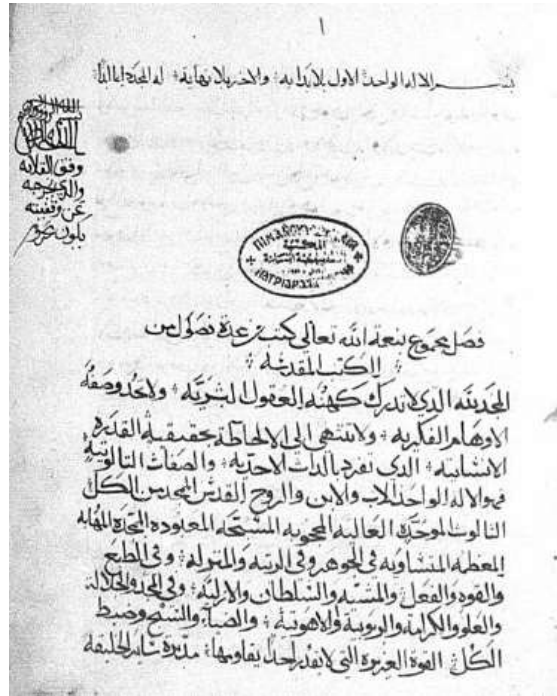 ١
بسم الاله الواحد الاول بلا بدايه والاخر بلا نهايه له المجد دايما
وقف القلايه
والذي يخرجه
عن وقفيته
يكون محروم
فصل مجموع بنعمة الله تعالى كتب من عدة فصول من
الكتب المقدسة
المجد لله الذي لا تدرك كهنه العقول البشريه ولا تحد وصفه
الاوهام الفكريه ولا تنتهى الى الاحاطة بحقيقة القدره
الانسانيه الذي تفرد بالذات الاحديه والصفات الثالوثيه
فهو الاله الواحد الاب والابن والروح القدس الممجد من الكل
الثالوث الموحده العاليه المحجوبه المسبحه المعبوده الممجده المهابه
المعظمه المتساويه في الجوهر وفي الرتبه والمنزله وفي الطبع
والقوه والفعل والمشيه والسلطان والازليه وفي المجد والجلاله
والعلو والكرامه والربوبية واللاهوتية والضيآء والتسبيح وضبط
الكل القوة العزيزه التي لا يقدر احد يقاومها مدبرة ساير الخليقة